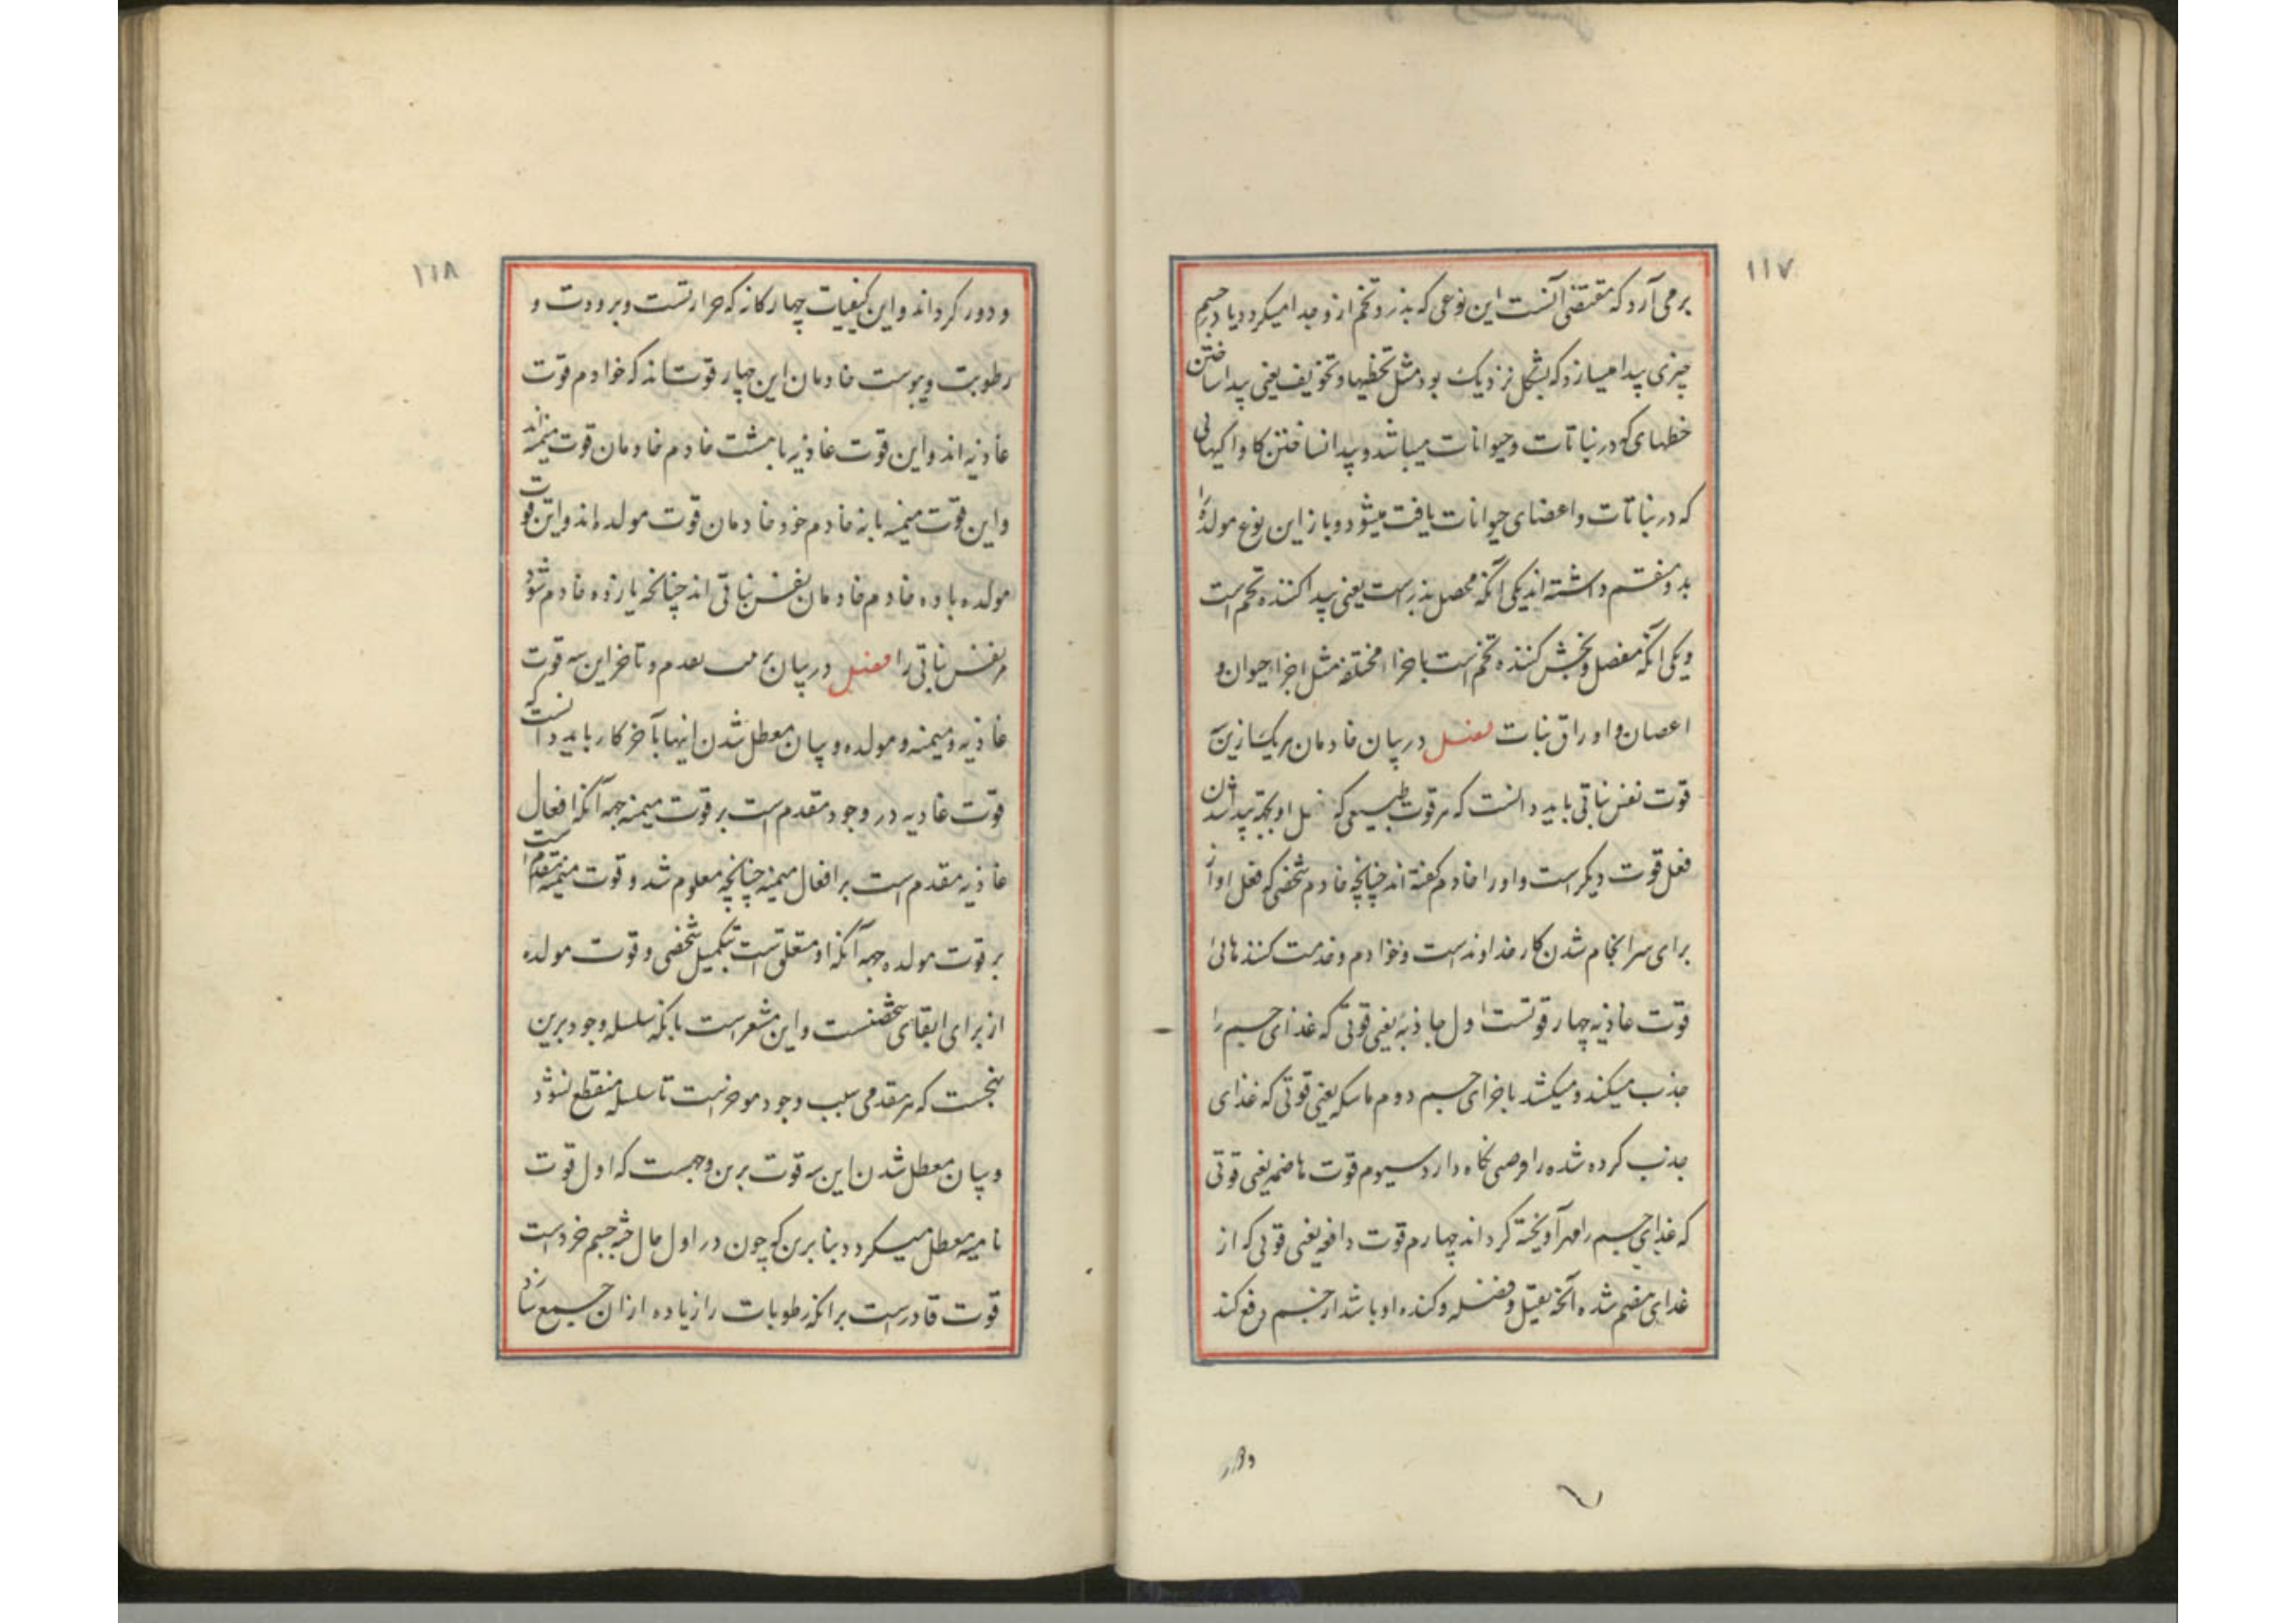 ۱۱۷
برمی آرد که مقتضی آنست این نوعی که بذر و تخم از و جدا میکردد یا در جسم
چیزی پیدا میسازد که بشکل نزدیک بود مثل تخطیها و تخویف یعنی پیدا ساختن
خطهای که در نباتات و حیوانات میباشد و پیدا ساختن کاواکیهائی
که در نباتات و اعضای حیوانات یافت میشود و باز این نوع مولده را
بدو قسم داشته اند یکی آنکه محصل بذرست یعنی پیدا کننده تخم است
و یکی آنکه مفصل و بخش کننده تخم است باجزاء مختلفه مثل اجزاء حیوان و
اغصان و اوراق نبات فصل در بیان خادمان هر یک ازین سه
قوت نفس نباتی باید دانست که هر قوت طبیعی که فعل او بجهة پیدا شدن
فعل قوت دیکر است و او را خادم کفته اند چنانچه خادم شخصی که فعل او از
برای سرانجام شدن کار خداوندست و خوادم و خدمت کنندهائی
قوت غاذیه چهار قوتست اول جاذبه یعنی قوتی که غذای جسم را
جذب میکند و میکشد باجزای جسم دوم ماسکه یعنی قوتی که غذای
جذب کرده شده را فرصتی نکاه دارد سیوم قوت هاضمه یعنی قوتی
که غذای جسم را مهرا و پخته کرداند چهارم قوت دافعه یعنی قوتی که از
غذای هضم شده آنچه ثقیل و فضله و کنده او باشد از جسم دفع کند
و دور
۱۱۸
و دور کرداند و این کیفیات چهارکانه که حرارتست و برودت و
رطوبت و یبوست خادمان این چهار قوت اند که خوادم قوت
غاذیه اند و این قوت غاذیه با هشت خادم خادمان قوت منمیه اند
و این قوت منمیه با نه خادم خود خادمان قوت مولده اند و این قوت
مولده با ده خادم خادمان نفس نباتی اند چنانچه یازده خادم شود
مر نفس نباتی را فصل در بیان تقدم و تاخر این سه قوت
غاذیه و منمیه و مولده و بیان معطل شدن اینها بآخر کار باید دانست که
قوت غاذیه در وجود مقدم است بر قوت منمیه جهه آنکه افعال
غاذیه مقدم است بر افعال منمیه چنانچه معلوم شد و قوت منمیه مقدم است
بر قوت مولده جهه آنکه او متعلق است بتکمیل شخصی و قوت مولده
از برای ابقای شخصست و این مشعر است بانکه سلسله وجود برین
نهجست که هر مقدمی سبب وجود موخرست تا سلسله منقطع نشود
و بیان معطل شدن این سه قوت برین وجهست که اول قوت
نامیه معطل میکردد بنا برین که چون در اول حال جثه جسم خرد است
قوت قادرست بر آنکه رطوبات را زیاده از ان جمع سازد